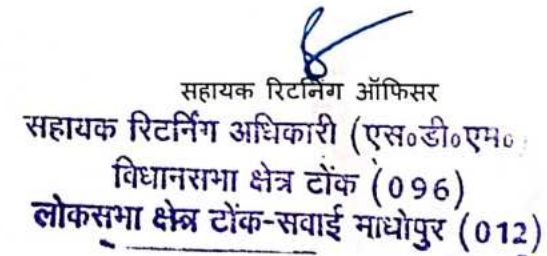 सहायक रिटर्निंग ऑफिसर
सहायक रिटर्निंग अधिकारी (एस०डी०एम०
विधानसभा क्षेत्र टोंक (096)
लोकसभा क्षेत्र टोंक-सवाई माधोपुर (012)